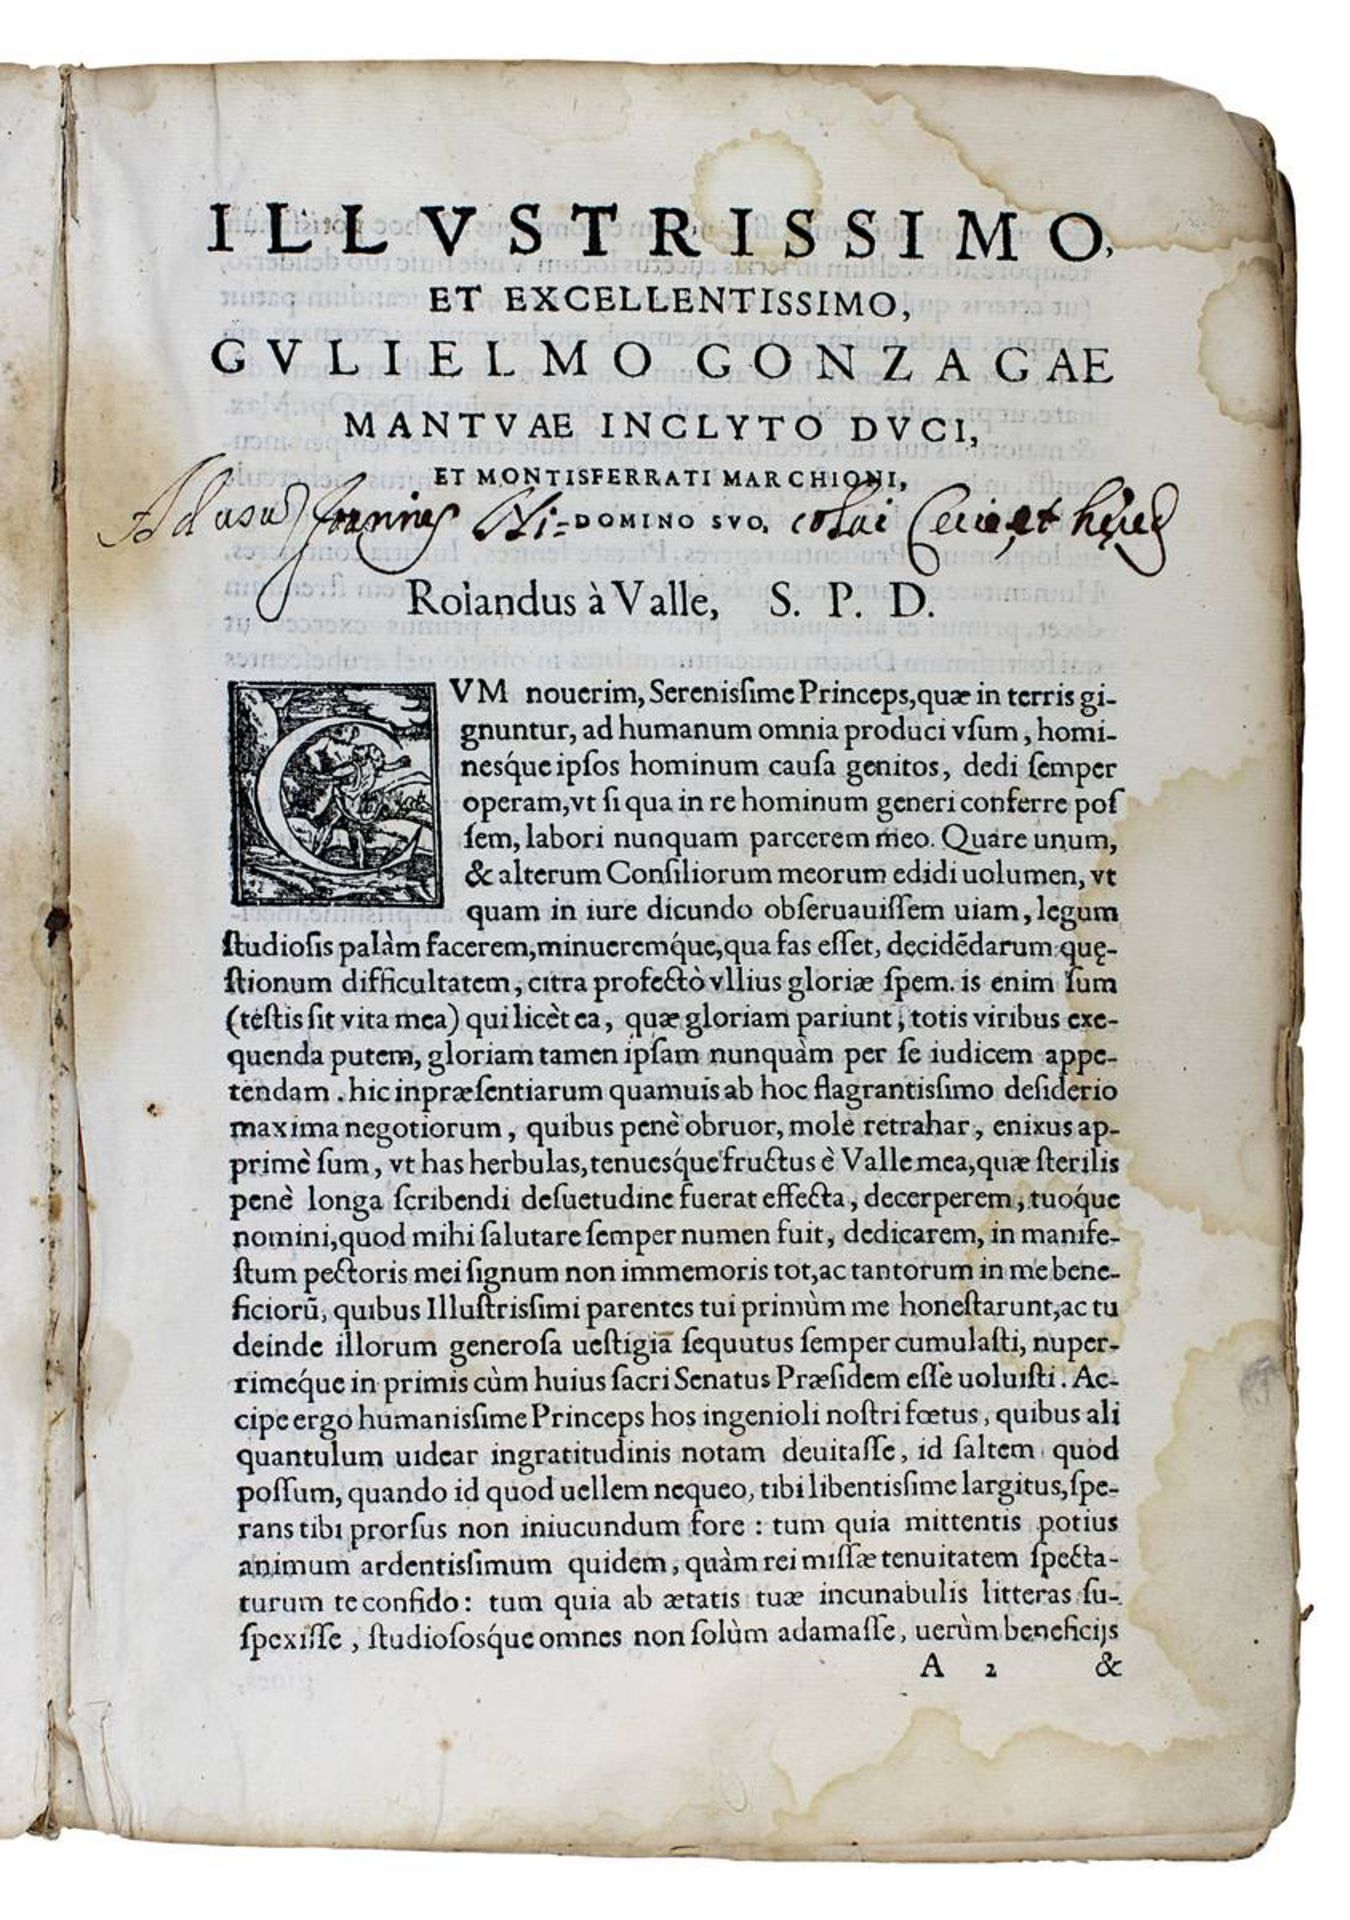 ILLVSTRISSIMO,
ET EXCELLENTISSIMO,
GVLIELMO GONZAGAE
MANTVAE INCLYTO DVCI,
ET MONTISFERRATI MARCHIONI,
Ad usu Joannis Ni=DOMINO SVO, colai et
Rolandus à Valle, S. P. D.
CVM nouerim, Sereniſſime Princeps, quæ in terris gi-
gnuntur, ad humanum omnia produci vſum, homi-
neſq́ue ipſos hominum cauſa genitos, dedi ſemper
operam, vt ſi qua in re hominum generi conferre poſ
ſem, labori nunquam parcerem meo. Quare unum,
& alterum Conſiliorum meorum edidi uolumen, vt
quam in iure dicundo obſeruauiſſem uiam, legum
ſtudioſis palàm facerem, minueremq́ue, qua fas eſſet, decidēdarum quę-
ſtionum difficultatem, citra profectò vllius gloriæ ſpem. is enim ſum
(teſtis ſit vita mea) qui licèt ea, quæ gloriam pariunt, totis viribus exe-
quenda putem, gloriam tamen ipſam nunquàm per ſe iudicem appe-
tendam. hic inpræſentiarum quamuis ab hoc flagrantiſſimo deſiderio
maxima negotiorum, quibus penè obruor, mole retrahar, enixus ap-
primè ſum, vt has herbulas, tenueſq́ue fructus è Valle mea, quæ ſterilis
penè longa ſcribendi deſuetudine fuerat effecta, decerperem, tuoq́ue
nomini, quod mihi ſalutare ſemper numen fuit, dedicarem, in manife-
ſtum pectoris mei ſignum non immemoris tot, ac tantorum in me bene-
ficiorū, quibus Illuſtriſſimi parentes tui primùm me honeſtarunt, ac tu
deinde illorum generoſa ueſtigiā ſequutus ſemper cumulaſti, nuper-
rimeq́ue in primis cùm huius ſacri Senatus Præſidem eſſe uoluiſti. Ac-
cipe ergo humaniſſime Princeps hos ingenioli noſtri fœtus, quibus ali
quantulum uidear ingratitudinis notam deuitaſſe, id ſaltem quod
poſſum, quando id quod uellem nequeo, tibi libentiſſime largitus, ſpe-
rans tibi prorſus non iniucundum fore: tum quia mittentis potius
animum ardentiſſimum quidem, quàm rei miſſæ tenuitatem ſpecta-
turum te confido: tum quia ab ætatis tuæ incunabulis litteras ſu-
ſpexiſſe, ſtudioſoſq́ue omnes non ſolùm adamaſſe, uerùm beneficijs
A 2 &